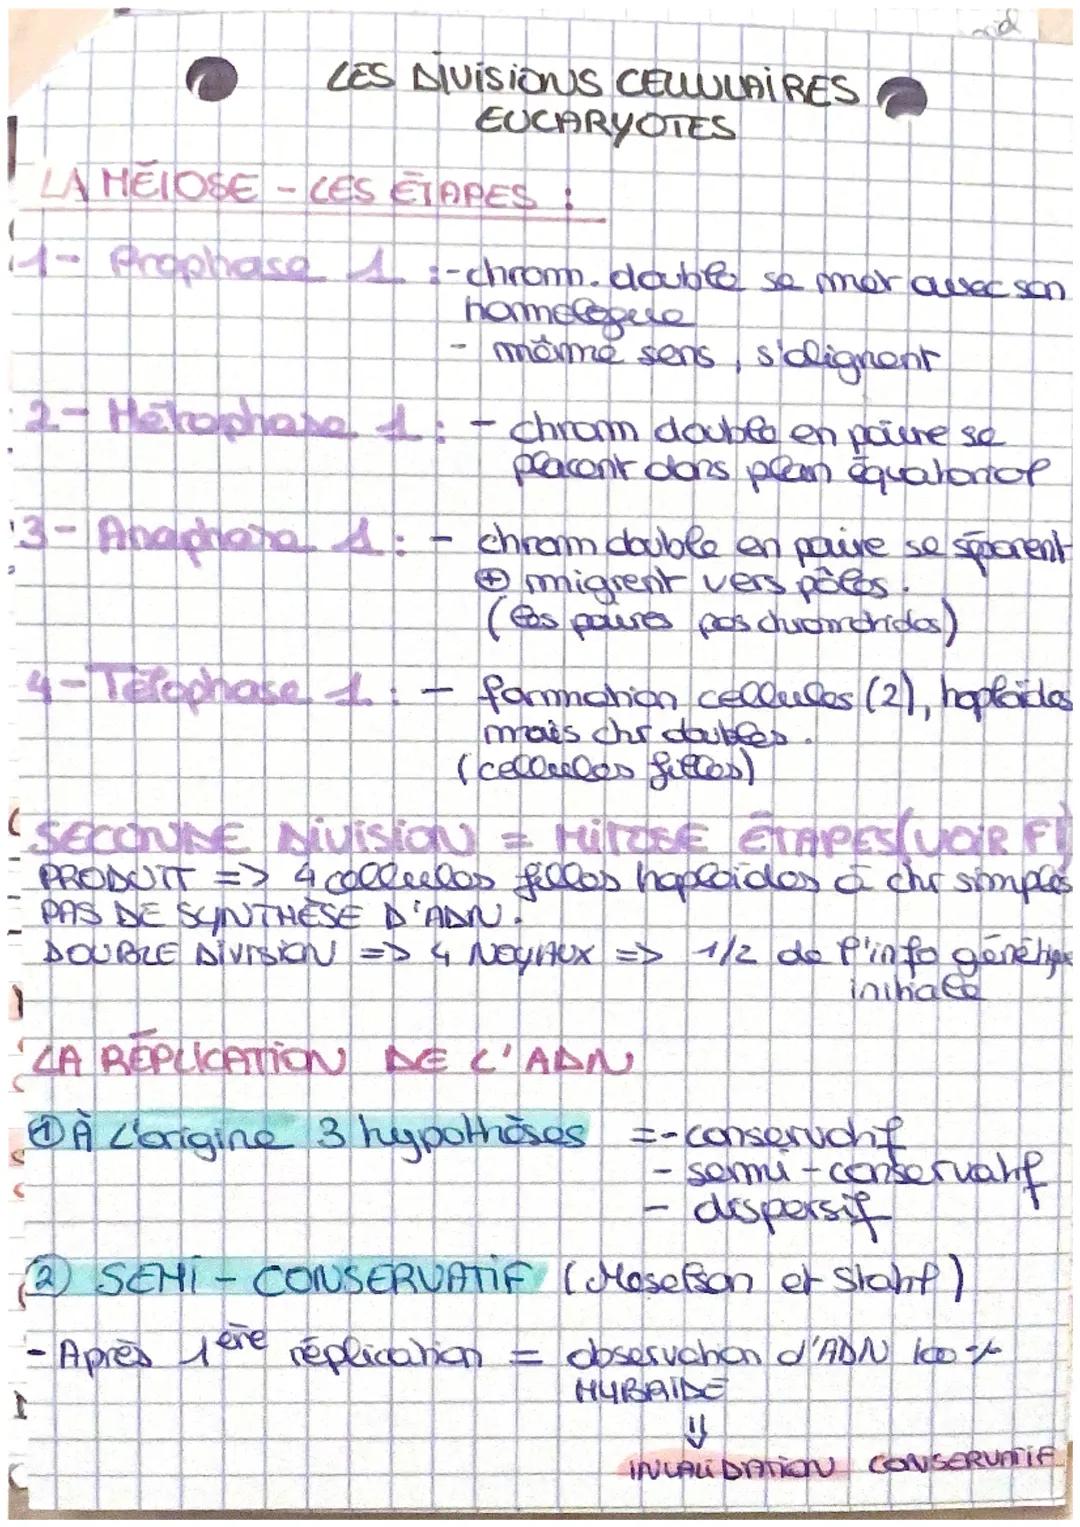 LES DIVISIONS CELLULAIRES
EUCARYOTES
LA MÉIOSE - LES ÉTAPES :
1- Prophase 1 : - chrom. double se met avec son
homologue
- même sens, s'alignent
2- Métaphase 1 : - chrom double en paire se
placent dans plan équatorial
3- Anaphase 1 : - chrom double en paire se séparent
⊕ migrent vers pôles.
(les paires pas chromatides)
4- Télophase 1 : - formation cellules (2), haploïdes
mais chr doubles.
(cellules filles)
SECONDE DIVISION = MITOSE ÉTAPES (VOIR F1
PRODUIT => 4 cellules filles haploïdes à chr simples
PAS DE SYNTHÈSE D'ADN.
DOUBLE DIVISION => 4 NOYAUX => 1/2 de l'info génétique
initiale
LA RÉPLICATION DE L'ADN
① À L'origine 3 hypothèses = - conservatif
- semi-conservatif
- dispersif
② SEMI - CONSERVATIF (Meselson et Stahl)
- Après 1ère réplication = observation d'ADN 100 %
HYBRIDE
⇓
INVALIDATION CONSERVATIF